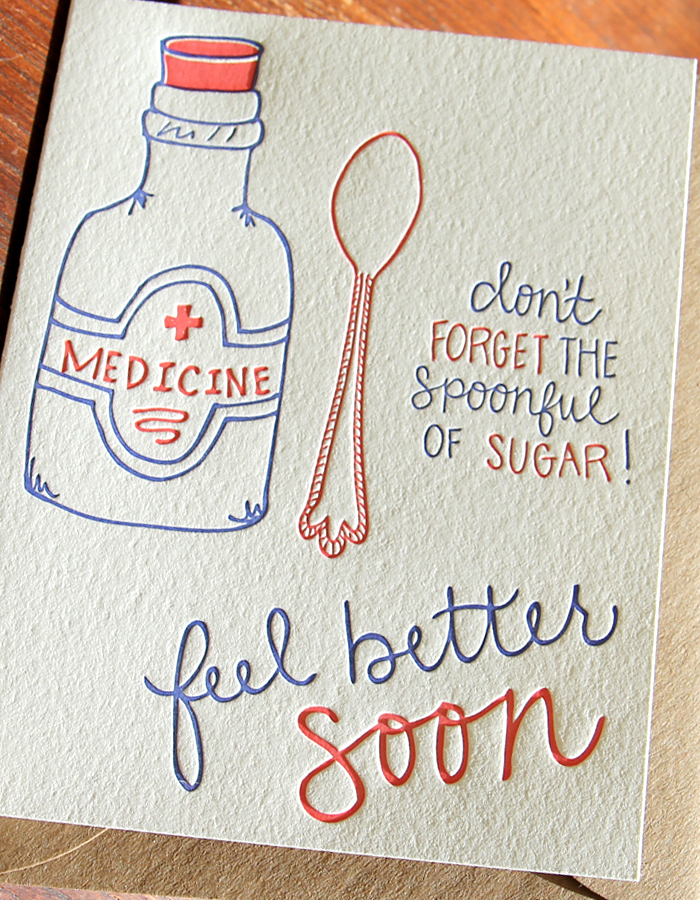 MEDICINE
don't
FORGET THE
spoonful
OF SUGAR!
feel better
soon